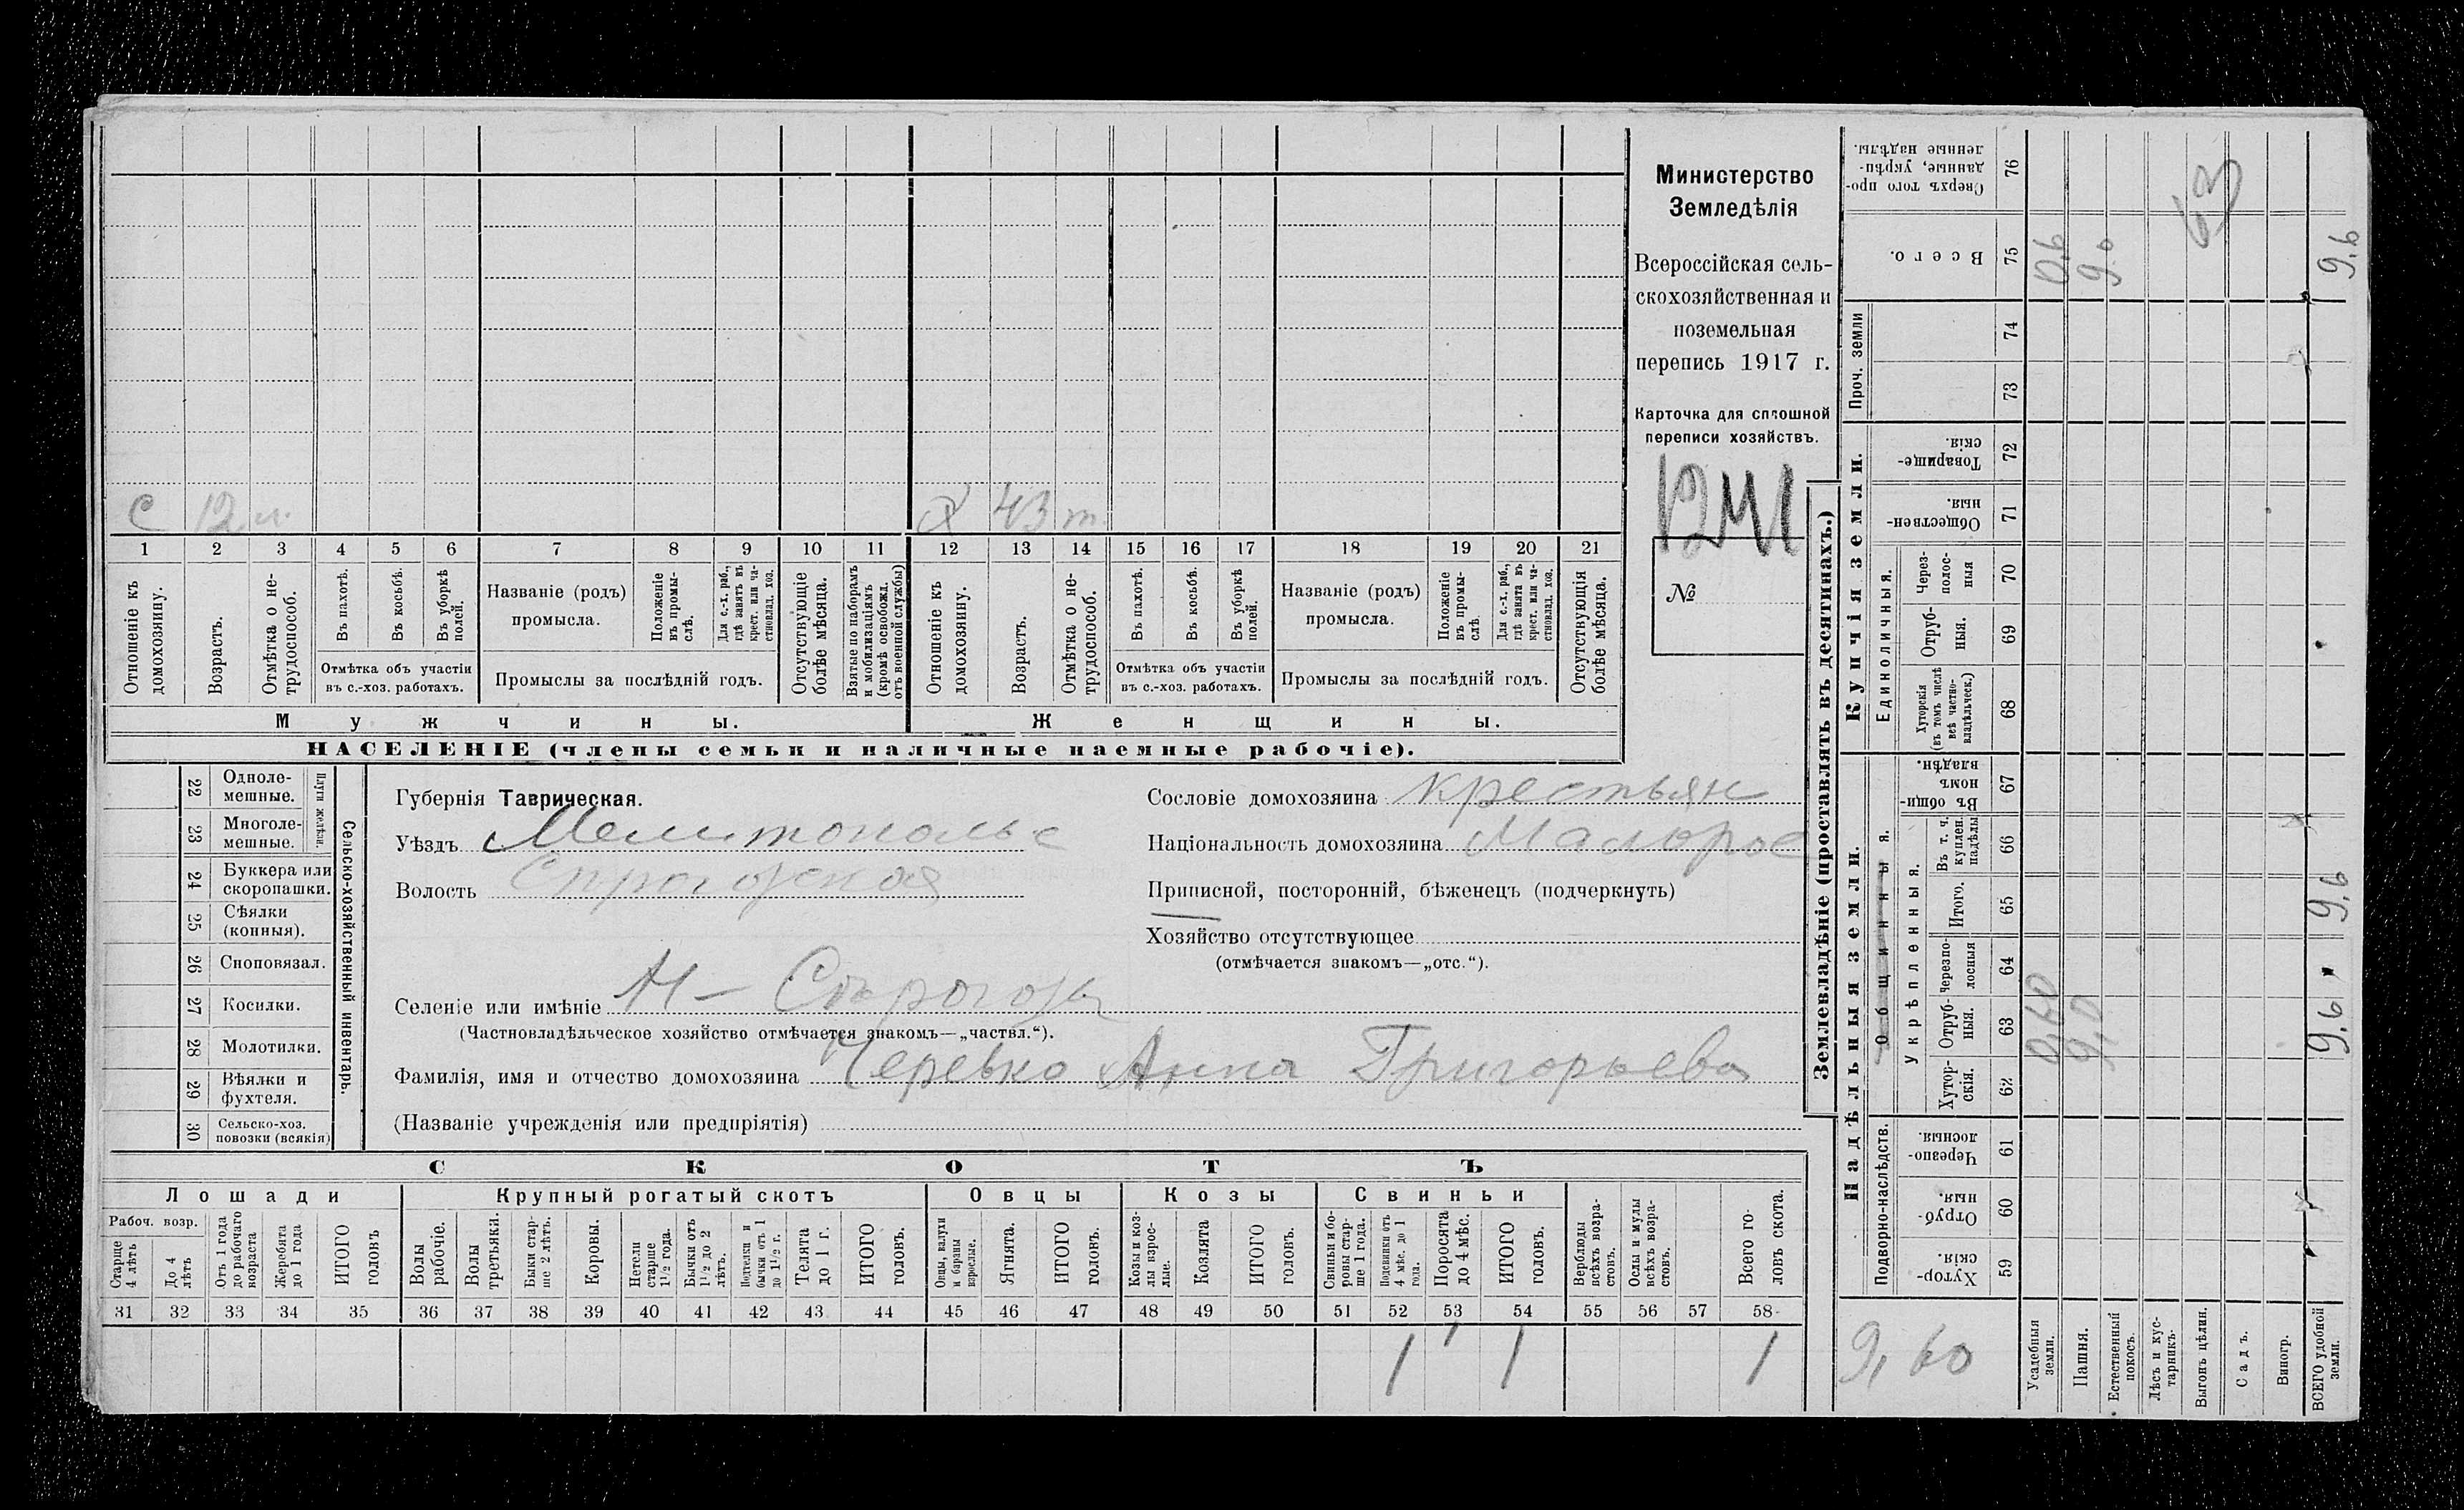 Министерство
Земледѣлія
Всероссійская сель-
скохозяйственная и
поземельная
перепись 1917 г.
Карточка для сплошной
переписи хозяйствъ.
№
с 12 м.
х 43 т.
1 2 3 4 5 6 7 8 9 10 11 12 13 14 15 16 17 18 19 20 21
Отношеніе къ домохозяину.
Возрастъ.
Отмѣтка о не-трудоспособ.
Въ пахотѣ.
Въ косьбѣ.
Въ уборкѣ полей.
Отмѣтка объ участіи
въ с.-хоз. работахъ.
Названіе (родъ)
промысла.
Положеніе въ промы-слѣ.
Для с.-х. раб., гдѣ занятъ въ крест. или ча-стновлад. хоз.
Промыслы за послѣдній годъ.
Отсутствующіе болѣе мѣсяца.
Взятые по наборамъ и мобилизаціямъ (кромѣ освобожд. отъ военной службы)
Отношеніе къ домохозяину.
Возрастъ.
Отмѣтка о не-трудоспособ.
Въ пахотѣ.
Въ косьбѣ.
Въ уборкѣ полей.
Отмѣтка объ участіи
въ с.-хоз. работахъ.
Названіе (родъ)
промысла.
Положеніе въ промы-слѣ.
Для с.-х. раб., гдѣ занята въ крест. или ча-стновлад. хоз.
Промыслы за послѣдній годъ.
Отсутствующія болѣе мѣсяца.
Мужчины.
Женщины.
НАСЕЛЕНІЕ (члены семьи и наличные наемные рабочіе).
22 Одноле-мешные.
23 Многоле-мешные.
Плуги желѣзн.
24 Буккера или скоропашки.
25 Сѣялки (конныя).
26 Сноповязал.
27 Косилки.
28 Молотилки.
29 Вѣялки и фухтеля.
30 Сельско-хоз. повозки (всякія)
Сельско-хозяйственный инвентарь.
Губернія Таврическая.
Уѣздъ Мелитопольс
Волость
Сословіе домохозяина крестьян
Національность домохозяина Малорос
Приписной, посторонній, бѣженецъ (подчеркнуть)
Хозяйство отсутствующее
(отмѣчается знакомъ—„отс.“).
Селеніе или имѣніе
(Частновладѣльческое хозяйство отмѣчается знакомъ—„частвл.“).
Фамилія, имя и отчество домохозяина Черевко Анна Григорьева
(Названіе учрежденія или предпріятія)
СКОТЪ
Лошади
Крупный рогатый скотъ
Овцы
Козы
Свиньи
Рабоч. возр.
Старше 4 лѣтъ
До 4 лѣтъ
Отъ 1 года до рабочаго возраста
Жеребята до 1 года
ИТОГО головъ
Волы рабочіе.
Волы третьяки.
Быки стар-ше 2 лѣтъ.
Коровы.
Нетели старше 1½ года.
Бычки отъ 1½ до 2 лѣтъ.
Подтелки и бычки отъ 1 до 1½ г.
Телята до 1 г.
ИТОГО головъ.
Овцы, валухи и бараны взрослые.
Ягнята.
ИТОГО головъ.
Козы и коз-лы взрос-лые.
Козлята
ИТОГО головъ.
Свиньи и бо-ровы стар-ше 1 года.
Подсвинки отъ 4 мѣс. до 1 года.
Поросята до 4 мѣс.
ИТОГО головъ.
Верблюды всѣхъ возра-стовъ.
Ослы и мулы всѣхъ возра-стовъ.
Всего го-ловъ скота.
31 32 33 34 35 36 37 38 39 40 41 42 43 44 45 46 47 48 49 50 51 52 53 54 55 56 57 58
1 1 1
Землевладѣніе (проставлять въ десятинахъ.)
Надѣльныя земли.
Купчія земли.
Проч. земли
Подворно-наслѣдств.
Общинныя.
Укрѣпленныя.
Единоличныя.
Хутор-скія. 59
Отруб-ныя. 60
Черезпо-лосныя. 61
Хутор-скія. 62
Отруб-ныя. 63
Черезпо-лосныя 64
Итого. 65
Въ т. ч. куплен. надѣлы 66
Въ общи-номъ владѣн. 67
Хуторскія (въ томъ числѣ всѣ частно-владѣльческ.) 68
Отруб-ныя. 69
Через-полос-ныя 70
Обществен-ныя. 71
Товарище-скія. 72
73
74
Всего. 75
Сверхъ того про-данные, укрѣп-ленные надѣлы. 76
Усадебныя земли. 0,60 0,6
Пашня. 9,0 9.0
Естественный покосъ.
Лѣсъ и кус-тарникъ.
Выгонъ цѣлин. 63
Садъ.
Виногр.
ВСЕГО удобной земли. 9,6 9,6 9,6
9,60